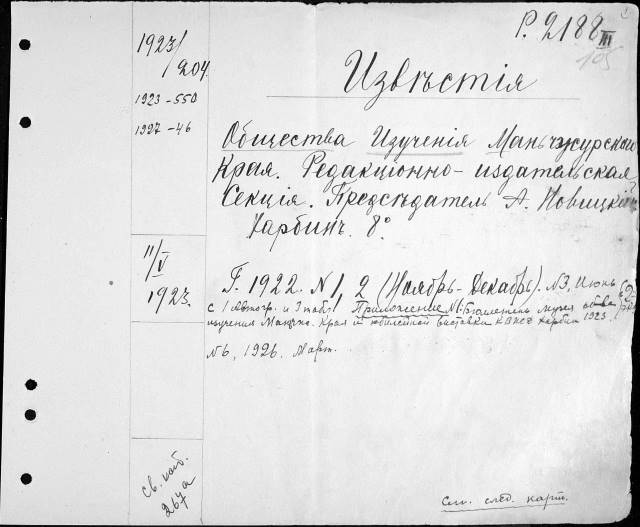 P. 2188
III
105
1923/
/204
1923-550
1927-46
Извѣстія
Общества Изученія Маньчжурскаго
Края. Редакціонно-издательская
Секція. Предсѣдатель А. Новицкій
Харбинъ. 8°.
11/V
1923.
Г. 1922. N 1, 2 (Ноябрь-Декабрь). N3, Июнь
с 1 и 3 табл. Приложение N1: Бюллетень Музея
изучения Манчж. Края и юбилейной выставки КВЖД Харбин 1923
N 6, 1926. Март.
св. каб.
267а
См. след. карт.